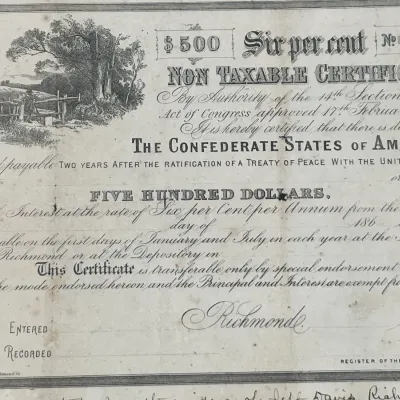 $500 Six per cent No
NON TAXABLE CERTIFIC
By Authority of the 14th Section
Act of Congress approved 17th Februa
It is hereby certified that there is d
THE CONFEDERATE STATES OF AM
payable TWO YEARS AFTER THE RATIFICATION OF A TREATY OF PEACE WITH THE UNIT
FIVE HUNDRED DOLLARS,
Interest at the rate of Six per Cent per Annum from the
day of 186
able on the first days of January and July in each year at the
Richmond or at the Depository in
This Certificate is transferable only by special endorsement
he mode endorsed hereon and the Principal and Interest are exempt fro
Richmond.
ENTERED
RECORDED
REGISTER OF THE
Davis Rich